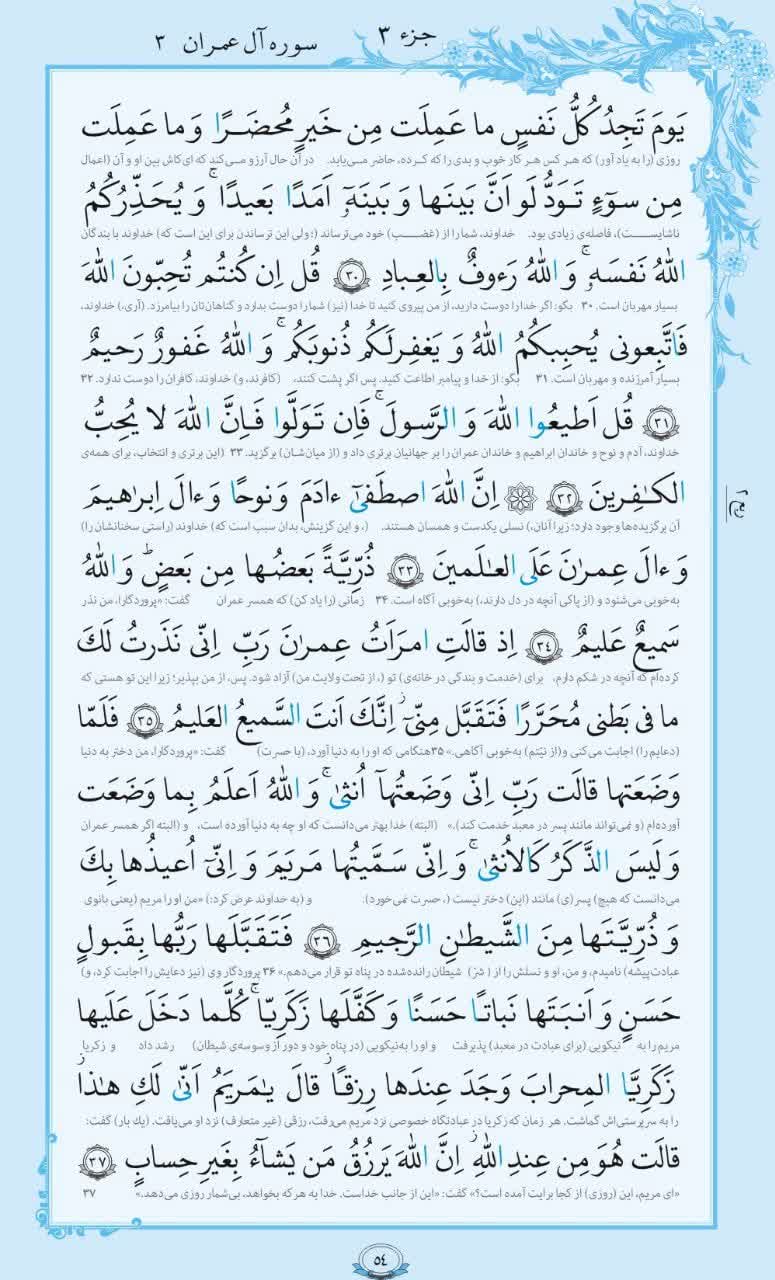 جزء ۳
سوره آل عمران ۳
يَومَ تَجِدُ كُلُّ نَفسٍ ما عَمِلَت مِن خَيرٍ مُحضَرًا وَ ما عَمِلَت
روزی (را به یاد آور) که هر کس هر کار خوب و بدی را که کرده، حاضر می‌یابد. در آن حال آرزو می‌کند که ای کاش بین او و آن (اعمال
مِن سوٓءٍ تَوَدُّ لَو اَنَّ بَينَها وَ بَينَهٗٓ اَمَدًا بَعيدًاۚ وَ يُحَذِّرُكُمُ
ناشایست)، فاصله‌ی زیادی بود. خداوند، شما را از (غضب) خود می‌ترساند (؛ ولی این ترساندن برای این است که) خداوند با بندگان
اللهُ نَفسَهٗۚ وَ اللهُ رَءوفٌ بِالعِبادِ ﴿۳۰﴾ قُل اِن كُنتُم تُحِبّونَ اللهَ
بسیار مهربان است. ۳۰ بگو: اگر خدا را دوست دارید، از من پیروی کنید تا خدا (نیز) شما را دوست بدارد و گناهان‌تان را بیامرزد. (آری،) خداوند،
فَاتَّبِعونی يُحبِبكُمُ اللهُ وَ يَغفِرلَكُم ذُنوبَكُمۚ وَ اللهُ غَفورٌ رَحيمٌ
بسیار آمرزنده و مهربان است. ۳۱ بگو: از خدا و پیامبر اطاعت کنید. پس اگر پشت کنند، (کافرند، و) خداوند، کافران را دوست ندارد. ۳۲
﴿۳۱﴾ قُل اَطيعُوا اللهَ وَ الرَّسولَۚ فَاِن تَوَلَّوا فَاِنَّ اللهَ لا يُحِبُّ
خداوند، آدم و نوح و خاندان ابراهیم و خاندان عمران را بر جهانیان برتری داد و (از میان‌شان) برگزید. ۳۳ (این برتری و انتخاب، برای همه‌ی
الكٰفِرينَ ﴿۳۲﴾ ۞ اِنَّ اللهَ اصطَفىٰٓ ءادَمَ وَ نوحًا وَ ءالَ اِبرٰهيمَ
آن برگزیده‌ها وجود دارد؛ زیرا آنان،) نسلی یکدست و همسان هستند. (، و این گزینش، بدان سبب است که) خداوند (راستی سخنانشان را)
وَ ءالَ عِمرٰنَ عَلَى العٰلَمينَ ﴿۳۳﴾ ذُرِّيَّةً بَعضُها مِن بَعضٍؕ وَ اللهُ
به‌خوبی می‌شنود و (از پاکی آنچه در دل دارند،) به‌خوبی آگاه است. ۳۴ زمانی (را یاد کن) که همسر عمران گفت: «پروردگارا، من نذر
سَميعٌ عَليمٌ ﴿۳٤﴾ اِذ قالَتِ امرَاَتُ عِمرٰنَ رَبِّ اِنّی نَذَرتُ لَكَ
کرده‌ام که آنچه در شکم دارم، برای (خدمت و بندگی در خانه‌ی) تو (، از تحت ولایت من) آزاد شود. پس، از من بپذیر؛ زیرا این تو هستی که
ما فی بَطنی مُحَرَّرًا فَتَقَبَّل مِنّیۤۖ اِنَّكَ اَنتَ السَّميعُ العَليمُ ﴿۳۵﴾ فَلَمّا
(دعایم را) اجابت می‌کنی و (از نیّتم) به‌خوبی آگاهی.» ۳۵ هنگامی که او را به دنیا آورد، (با حسرت) گفت: «پروردگارا، من دختر به دنیا
وَضَعَتها قالَت رَبِّ اِنّی وَضَعتُهاۤ اُنثىٰۚ وَ اللهُ اَعلَمُ بِما وَضَعَت
آورده‌ام (و نمی‌تواند مانند پسر در معبد خدمت کند).» (البته) خدا بهتر می‌دانست که او چه به دنیا آورده است، و (البته اگر همسر عمران
وَ لَيسَ الذَّكَرُ كَالاُنثىٰۚ وَ اِنّی سَمَّيتُها مَريَمَ وَ اِنّیۤ اُعيذُها بِكَ
می‌دانست که هیچ) پسر(ی) مانند (این) دختر نیست (، حسرت نمی‌خورد). و (به خداوند عرض کرد:) «من او را مریم (یعنی بانوی
وَ ذُرِّيَّتَها مِنَ الشَّيطٰنِ الرَّجيمِ ﴿۳٦﴾ فَتَقَبَّلَها رَبُّها بِقَبولٍ
عبادت‌پیشه) نامیدم، و من، او و نسلش را از ( شرّ) شیطان رانده‌شده در پناه تو قرار می‌دهم.» ۳۶ پروردگار وی (نیز دعایش را اجابت کرد، و)
حَسَنٍ وَ اَنبَتَها نَباتًا حَسَنًا وَ كَفَّلَها زَكَرِيّاۚ كُلَّما دَخَلَ عَلَيها
مریم را به نیکویی (برای عبادت در معبد) پذیرفت و او را به‌نیکویی (در پناه خود و دور از وسوسه‌ی شیطان) رشد داد و زکریا
زَكَرِيَّا المِحرابَ وَجَدَ عِندَها رِزقًاۖ قالَ يٰمَريَمُ اَنّىٰ لَكِ هٰذاۖ
را به سرپرستی‌اش گماشت. هر زمان که زکریا در عبادتگاه خصوصی نزد مریم می‌رفت، رزقی (غیر متعارف) نزد او می‌یافت. (یك بار) گفت:
قالَت هُوَ مِن عِندِ اللهِۖ اِنَّ اللهَ يَرزُقُ مَن يَشآءُ بِغَيرِ حِسابٍ ﴿۳۷﴾
«ای مریم، این (روزی) از کجا برایت آمده است؟» گفت: «این از جانب خداست. خدا به هر که بخواهد، بی‌شمار روزی می‌دهد.» ۳۷
٥٤